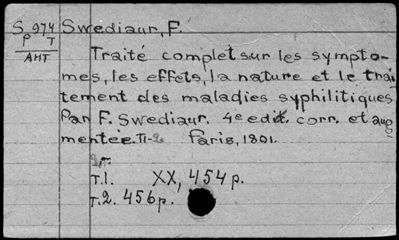 S 974 Swediaur, F.
P T
AHT
Traité complet sur les sympto-
mes, les effets, la nature et le trai
tement des maladies syphilitiques
Par F. Swediaur. 4e edit. corr. et aug
mentée. T1-2 Paris, 1801.
2t.
T.1. XX, 454 p.
T.2. 456 p.